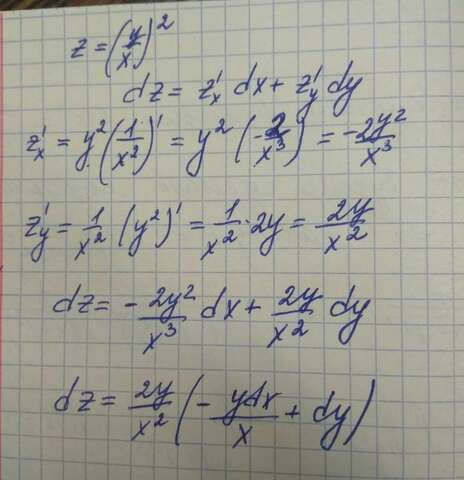 z = (y/x)^2
dz = z'_x dx + z'_y dy
z'_x = y^2 (1/x^2)' = y^2 (-2/x^3) = -2y^2/x^3
z'_y = 1/x^2 (y^2)' = 1/x^2 · 2y = 2y/x^2
dz = - 2y^2/x^3 dx + 2y/x^2 dy
dz = 2y/x^2 (- ydx/x + dy)